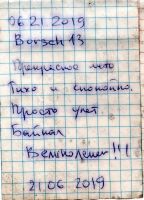 06 21 2019
Borsch 13
Прекрасное место
Тихо и спокойно.
Просто улет.
Байкал
Великолепен!!!
21.06 2019